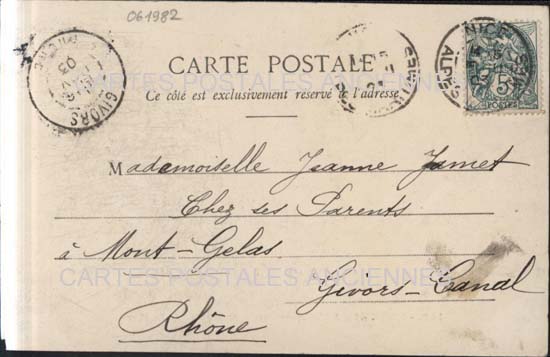 061982
GIVORS
03
CARTE POSTALE
Ce côté est exclusivement réservé à l'adresse
NICE
ALPES
5
POSTES
Mademoiselle Jeanne Jamet
Chez ses Parents
à Mont-Gelas
Givors-Canal
Rhône
CARTES POSTALES ANCIENNES
CARTES POSTALES ANCIENNES